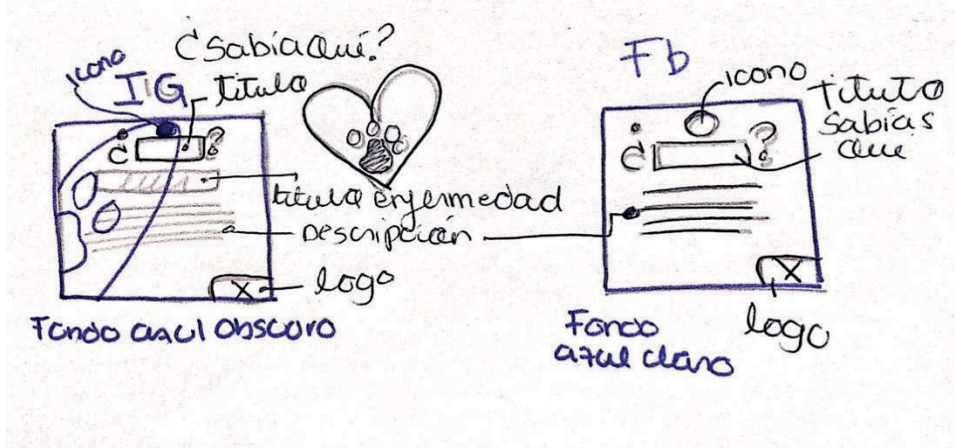 ¿Sabia Qué?
icono
IG
titulo
¿ ?
titulo enfermedad
Descripción
X
logo
Fondo azul obscuro
Fb
icono
Titulo
Sabias
que
¿ ?
X
logo
Fondo
azul claro